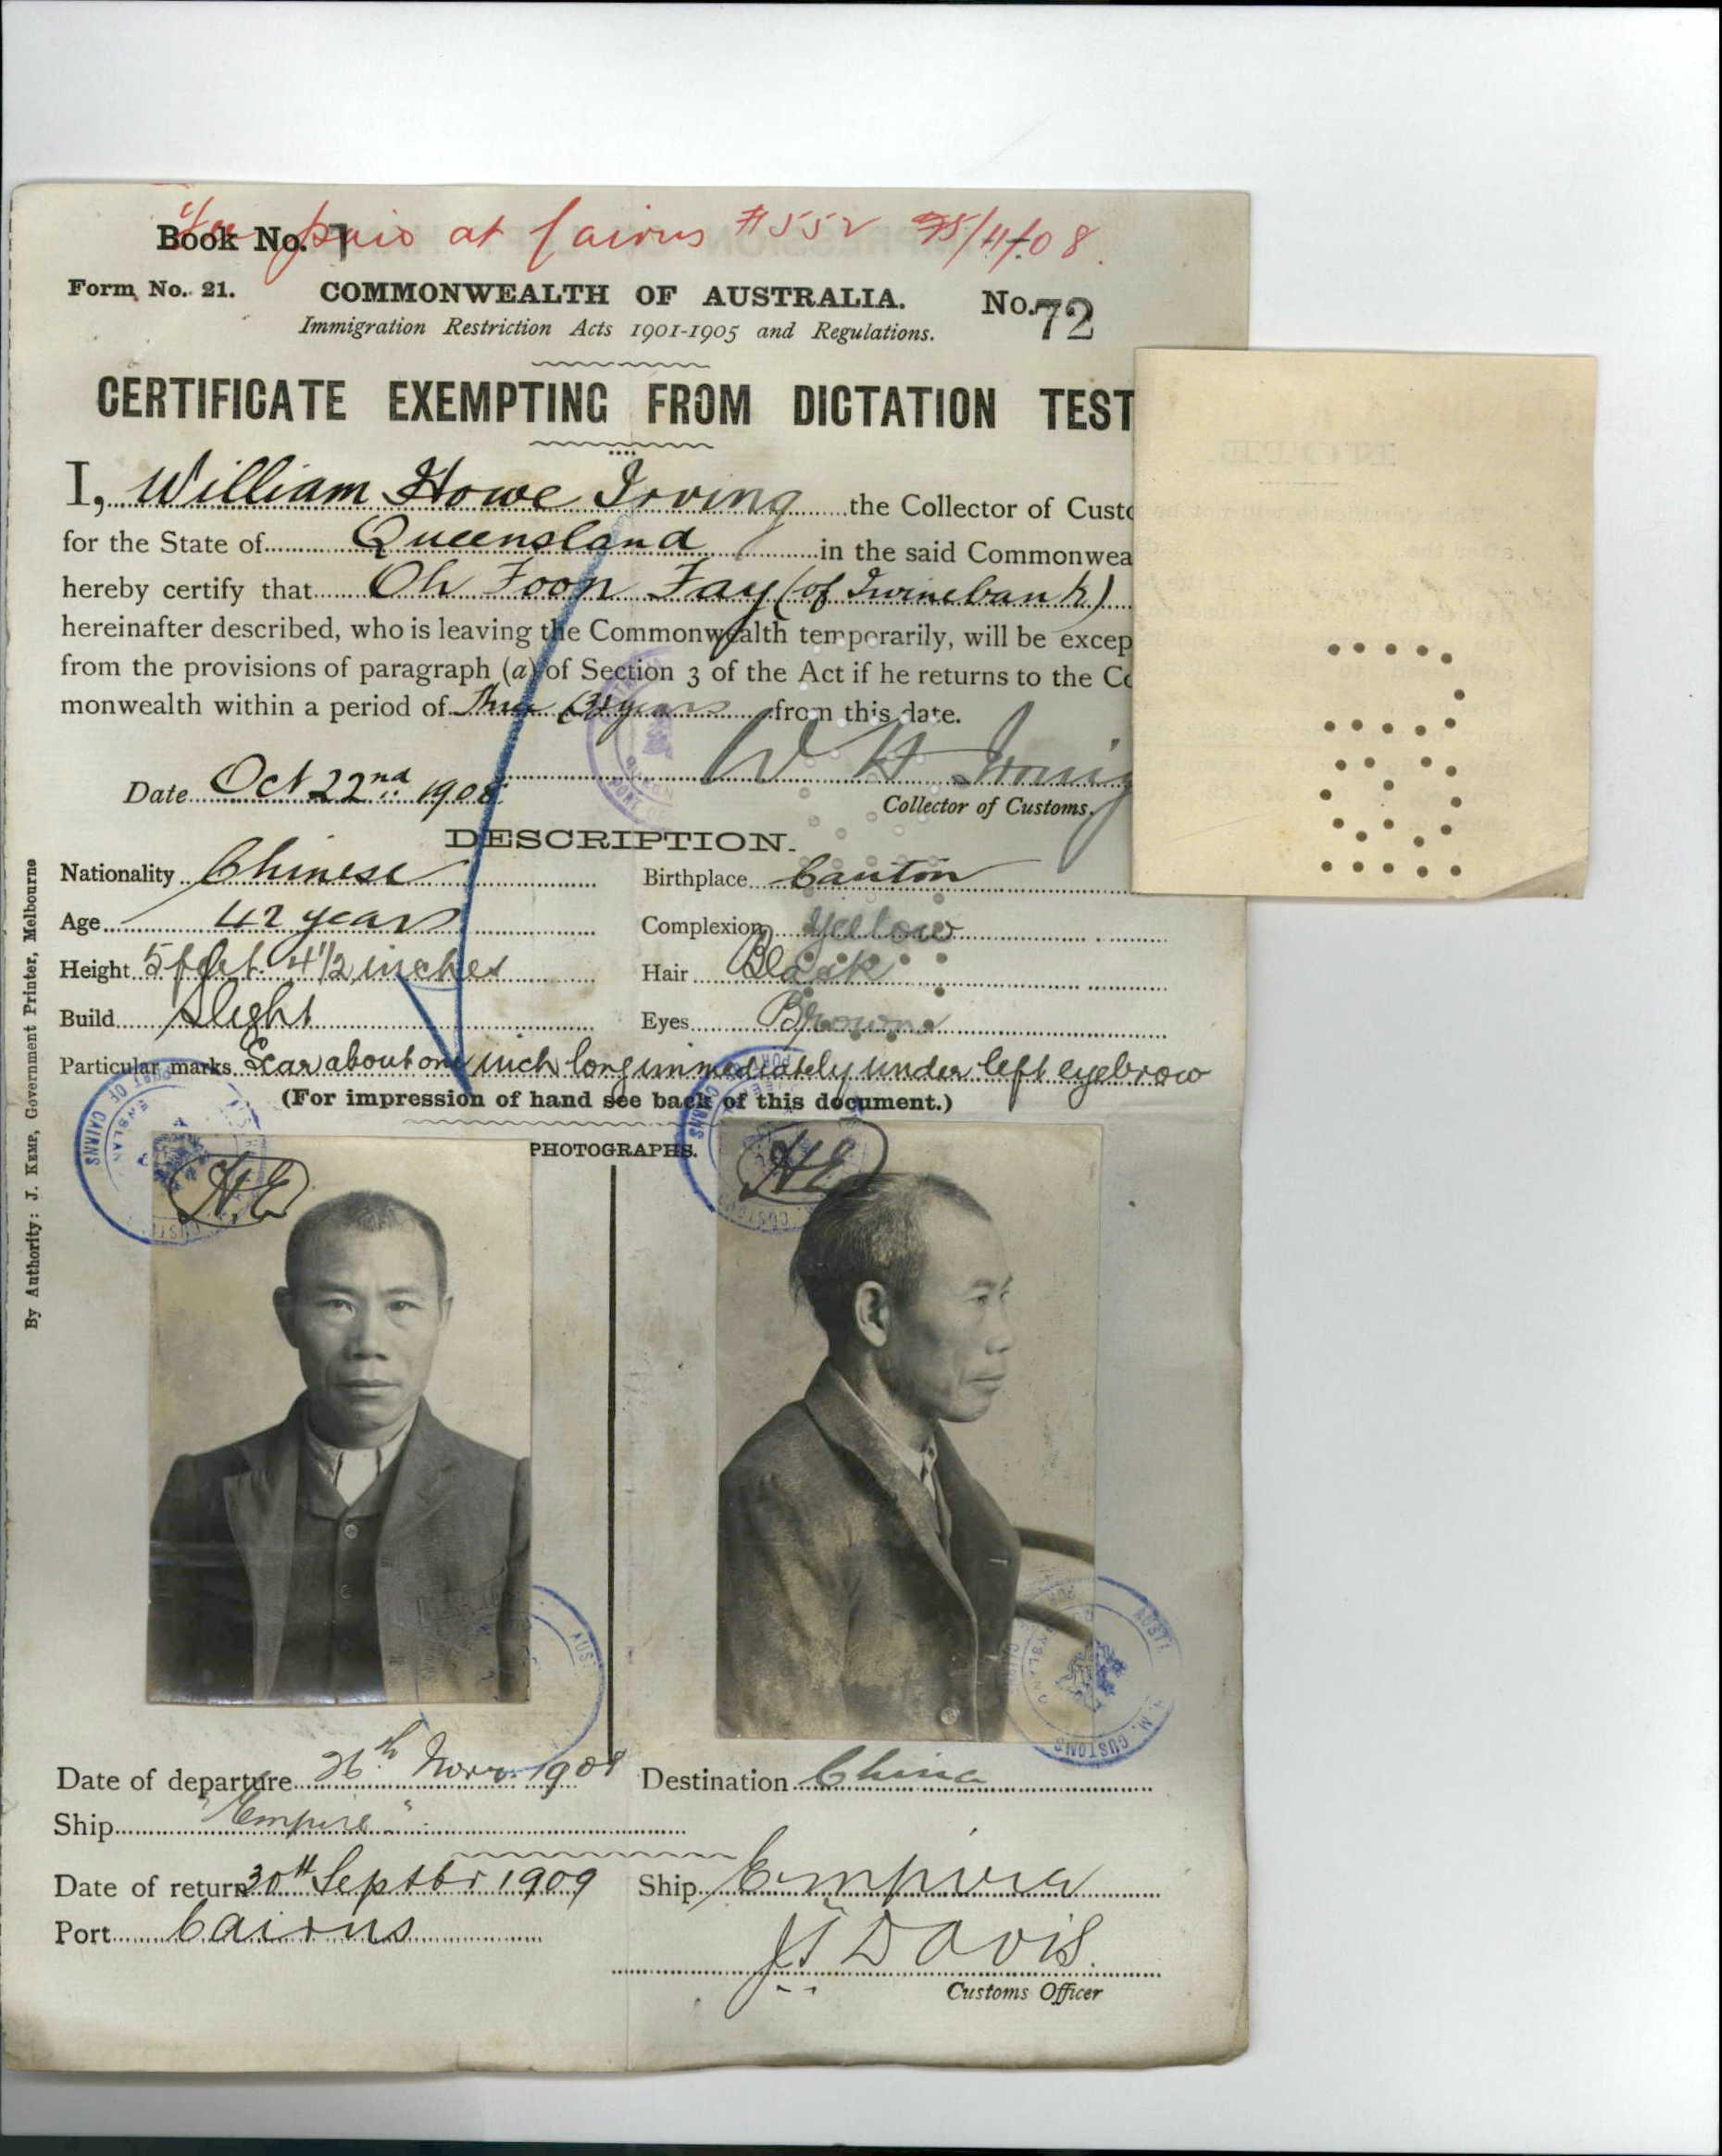 Fee paid at Cairns #552 25/11/08.
Book No. 1
Form No. 21.
COMMONWEALTH OF AUSTRALIA.
No. 72
Immigration Restriction Acts 1901-1905 and Regulations.
CERTIFICATE EXEMPTING FROM DICTATION TEST
I, William Howe Irving the Collector of Custo
for the State of Queensland in the said Commonwea
hereby certify that Ah Foon Fay (of Irvinebank)
hereinafter described, who is leaving the Commonwealth temporarily, will be excep
from the provisions of paragraph (a) of Section 3 of the Act if he returns to the Co
monwealth within a period of Three (3) years from this date.
W H Irving
Date Oct 22nd. 1908
Collector of Customs.
DESCRIPTION.
Nationality Chinese Birthplace Canton
Age 42 years Complexion Yellow
Height 5 feet 4 1/2 inches Hair Black
Build Slight Eyes Brown
Particular marks Scar about one inch long immediately under left eyebrow
(For impression of hand see back of this document.)
PHOTOGRAPHS.
H.E
H.E
Date of departure 26th Novr. 1908 Destination China
Ship "Empire"
Date of return 30th Septbr 1909 Ship Empire
Port Cairns
J T Davis.
Customs Officer
By Authority: J. KEMP, Government Printer, Melbourne
PORT OF CAIRNS
CUSTOMS